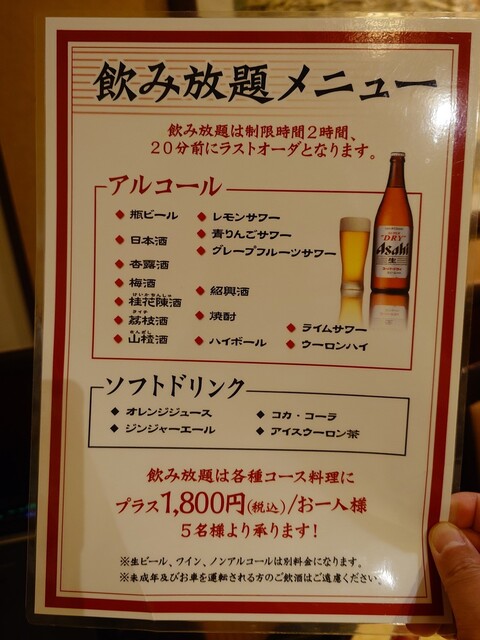 飲み放題メニュー
飲み放題は制限時間2時間、
20分前にラストオーダとなります。
アルコール
◆ 瓶ビール
◆ 日本酒
◆ 杏露酒
◆ 梅酒
けいかちんしゅ
◆ 桂花陳酒
ライチ
◆ 荔枝酒
さんざし
◆ 山樝酒
◆ レモンサワー
◆ 青りんごサワー
◆ グレープフルーツサワー
◆ 紹興酒
◆ 焼酎
◆ ハイボール
◆ ライムサワー
◆ ウーロンハイ
"DRY"
Asahi
生
ソフトドリンク
◆ オレンジジュース
◆ ジンジャーエール
◆ コカ・コーラ
◆ アイスウーロン茶
飲み放題は各種コース料理に
プラス1,800円(税込)/お一人様
5名様より承ります!
※生ビール、ワイン、ノンアルコールは別料金になります。
※未成年及びお車を運転される方のご飲酒はご遠慮ください。